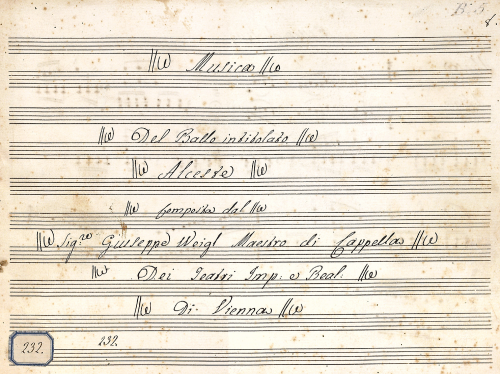 B. 5
8.
Musica
Del Ballo intitolato
Alceste
Composta dal
Sig.re Giuseppe Weigl Maestro di Cappella
Dei Teatri Imp: e Real:
Di Vienna
232.
232.